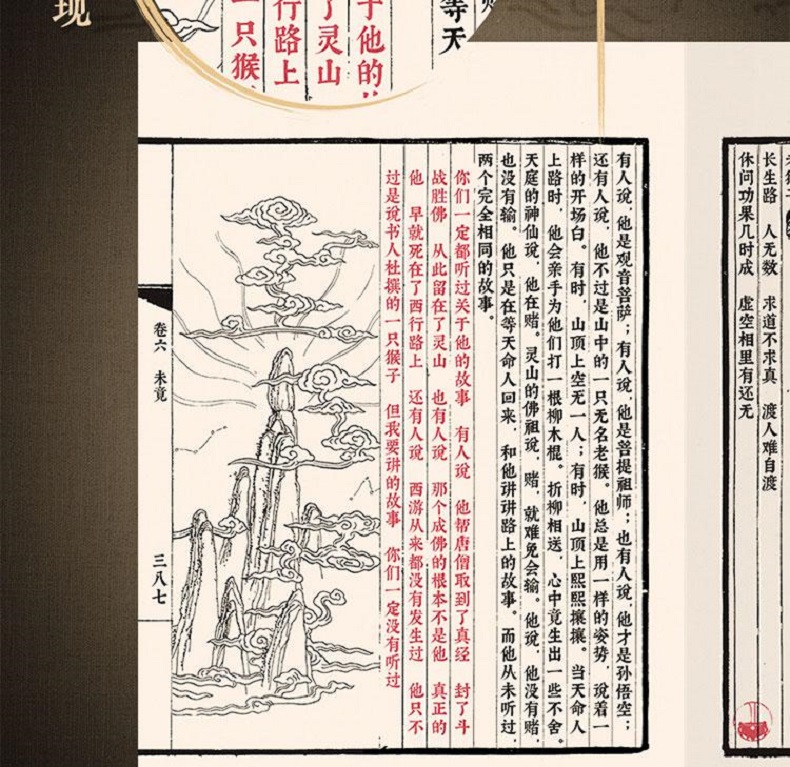 现
等天
于他的
了灵山
行路上
一只猴
长生路　人无数　求道不求真　渡人难自渡
休问功果几时成　虚空相里有还无
有人说，他是观音菩萨；有人说，他是菩提祖师；也有人说，他才是孙悟空；
还有人说，他不过是山中的一只无名老猴。他总是用一样的姿势，说着一
样的开场白。有时，山顶上空无一人；有时，山顶上熙熙攘攘。当天命人
上路时，他会亲手为他们打一根柳木棍。折柳相送，心中竟生出一些不舍。
天庭的神仙说，他在赌。灵山的佛祖说，赌，就难免会输。他说，他没有赌，
也没有输。他只是在等天命人回来，和他讲讲路上的故事。而他从未听过，
两个完全相同的故事。
你们一定都听过关于他的故事　有人说　他帮唐僧取到了真经　封了斗
战胜佛　从此留在了灵山　也有人说　那个成佛的根本不是他　真正的
他　早就死在了西行路上　还有人说　西游从来都没有发生过　他只不
过是说书人杜撰的一只猴子　但我要讲的故事　你们一定没有听过
卷六　未竟
三八七